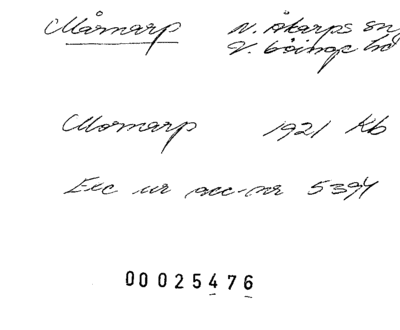 Mårmarp N. Åkarps sn
V. Göinge hd
Mormarp 1921 Kb
Exc ur acc-nr 5394
00025476